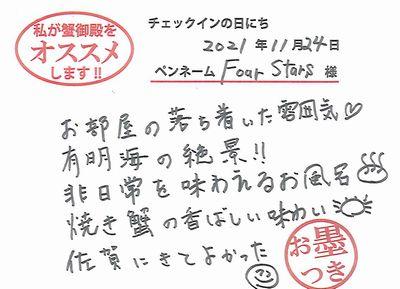 私が蟹御殿を
オススメ
します!!
チェックインの日にち
2021年11月24日
ペンネーム Four Stars 様
お部屋の落ち着いた雰囲気♡
有明海の絶景!!
非日常を味わえるお風呂♨
焼き蟹の香ばしい味わい
佐賀にきてよかった
お墨
つき